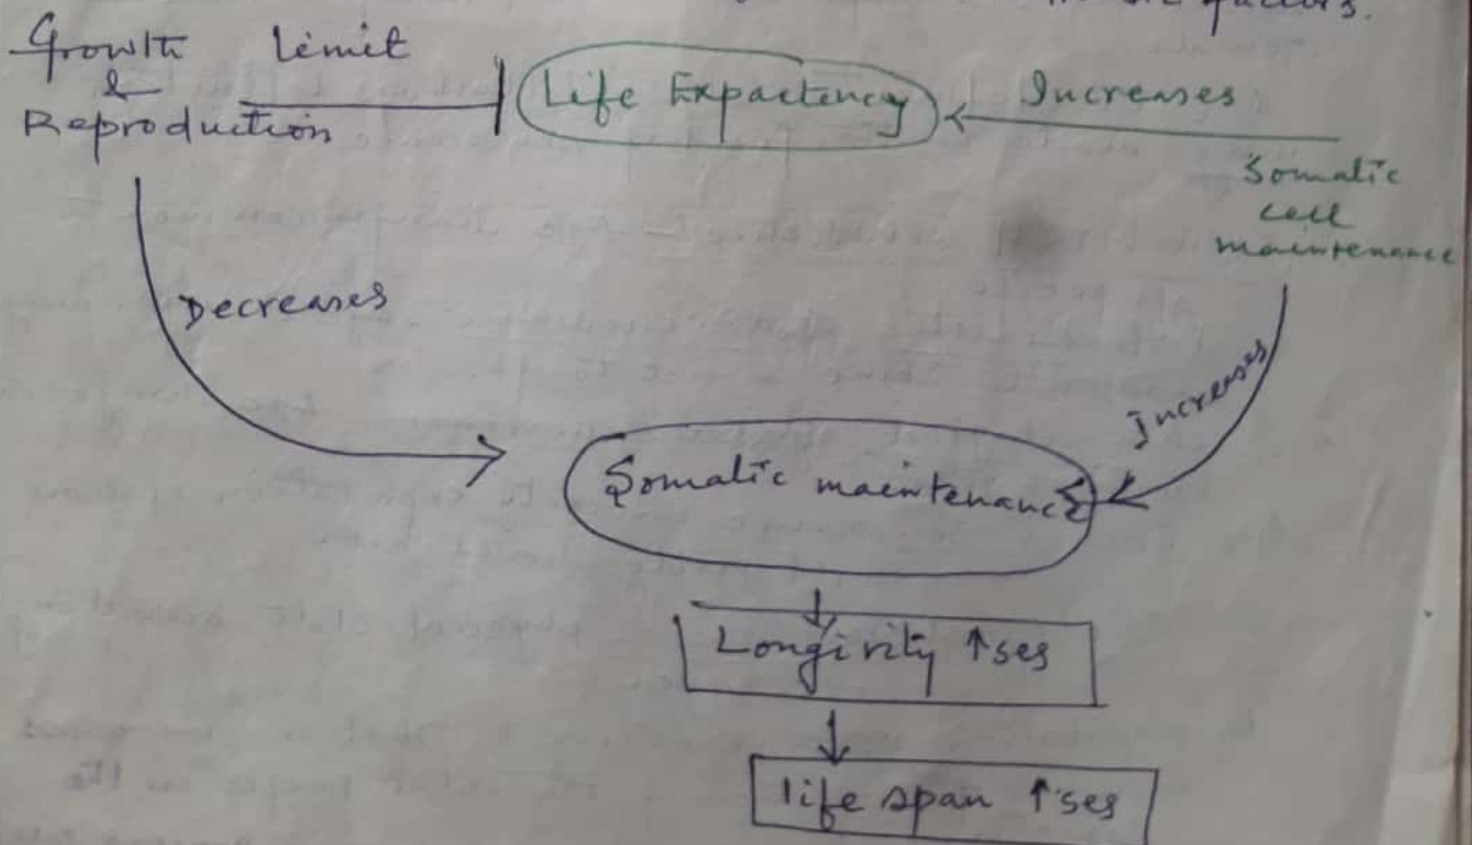 factors.
Growth
&
Reproduction
Limit
Life Expactency
Increases
Somatic
cell
maintenance
Decreases
Increases
Somatic maintenance
Longivity ↑ses
life span ↑ses